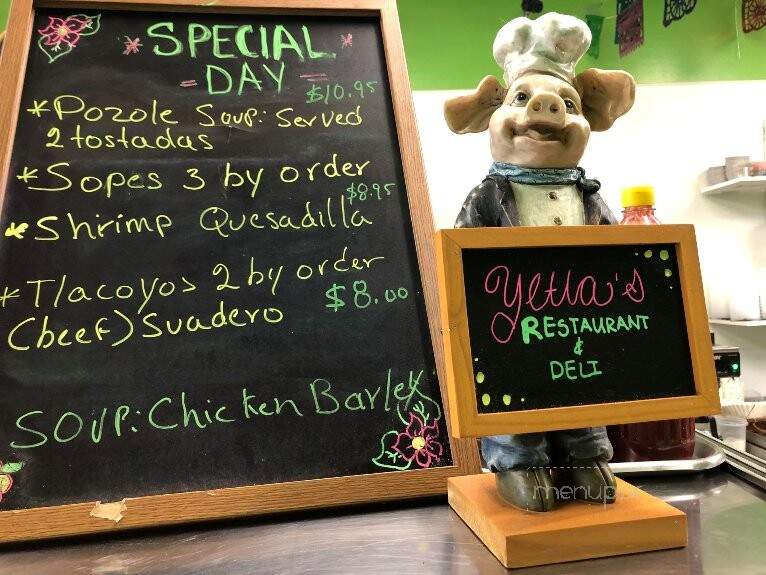 * SPECIAL *
= DAY =
$10.95
* Pozole Soup: Served
2 tostadas
* Sopes 3 by order
$8.95
* Shrimp Quesadilla
* Tlacoyos 2 by order
(beef) Suadero $8.00
SOUP: Chicken Barley
Yetla's
RESTAURANT
&
DELI
menupix